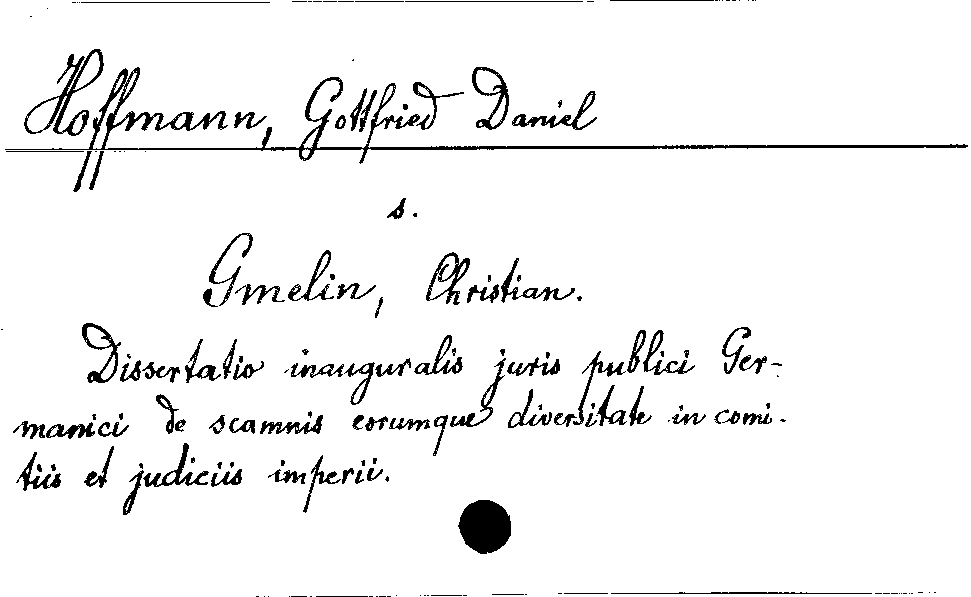 Hoffmann, Gottfried Daniel
s.
Gmelin, Christian.
Dissertatio inauguralis juris publici Ger-
manici de scamnis eorumque diversitate in comi-
tiis et judiciis imperii.